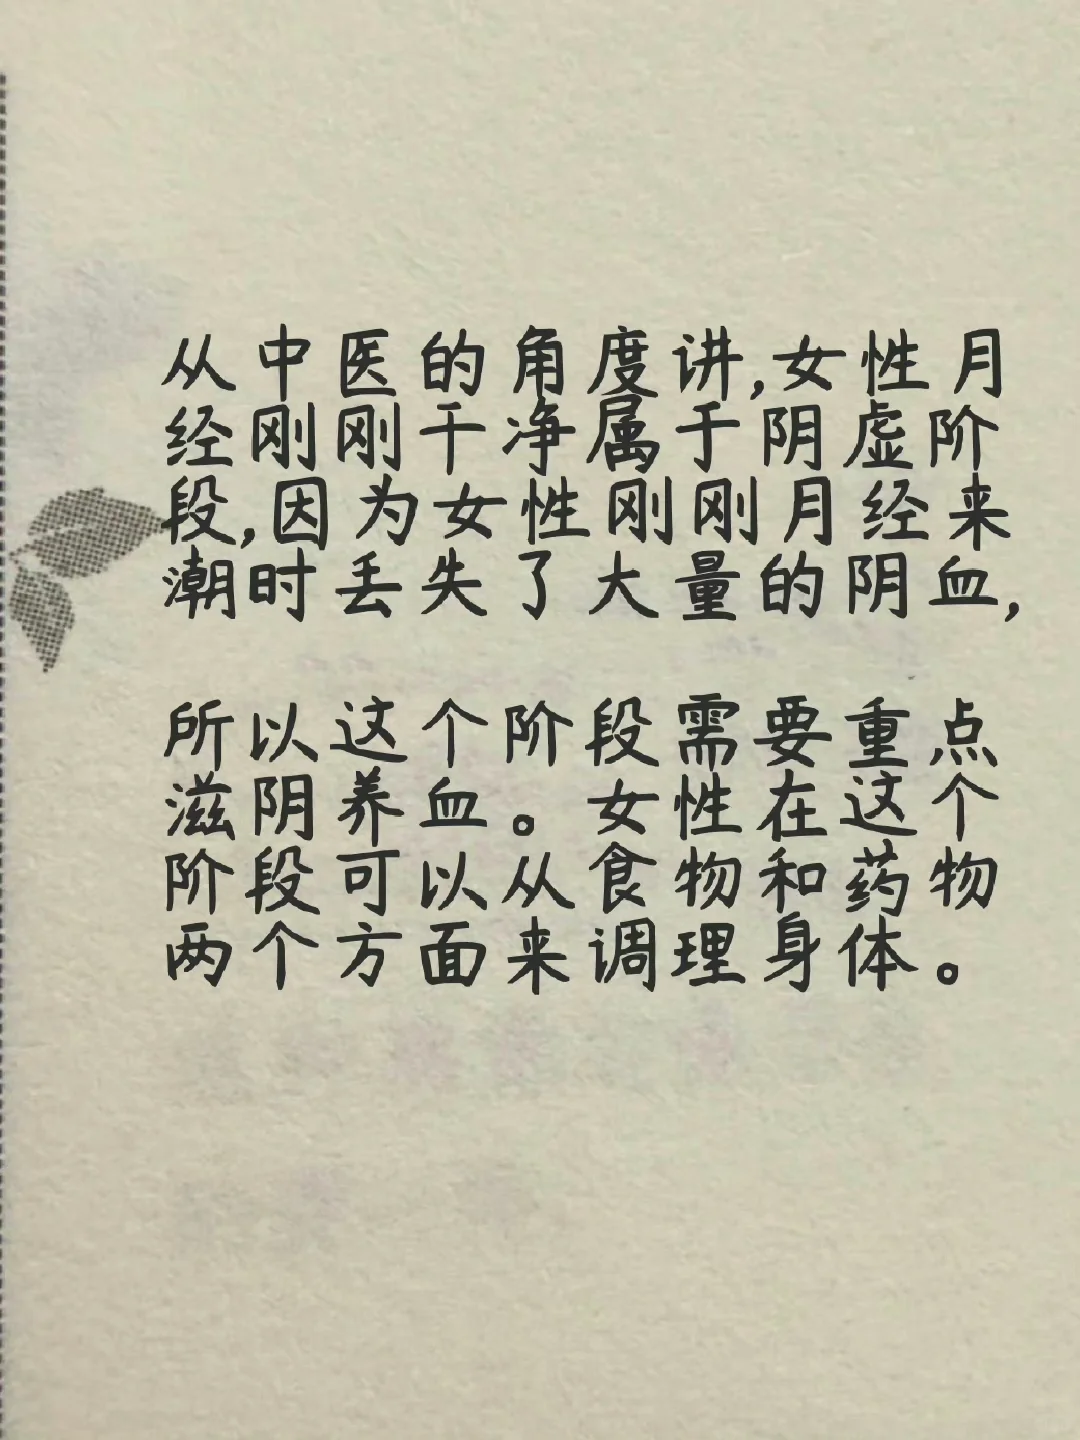 从中医的角度讲,女性月
经刚刚干净属于阴虚阶
段,因为女性刚刚月经来
潮时丢失了大量的阴血,
所以这个阶段需要重点
滋阴养血。女性在这个
阶段可以从食物和药物
两个方面来调理身体。